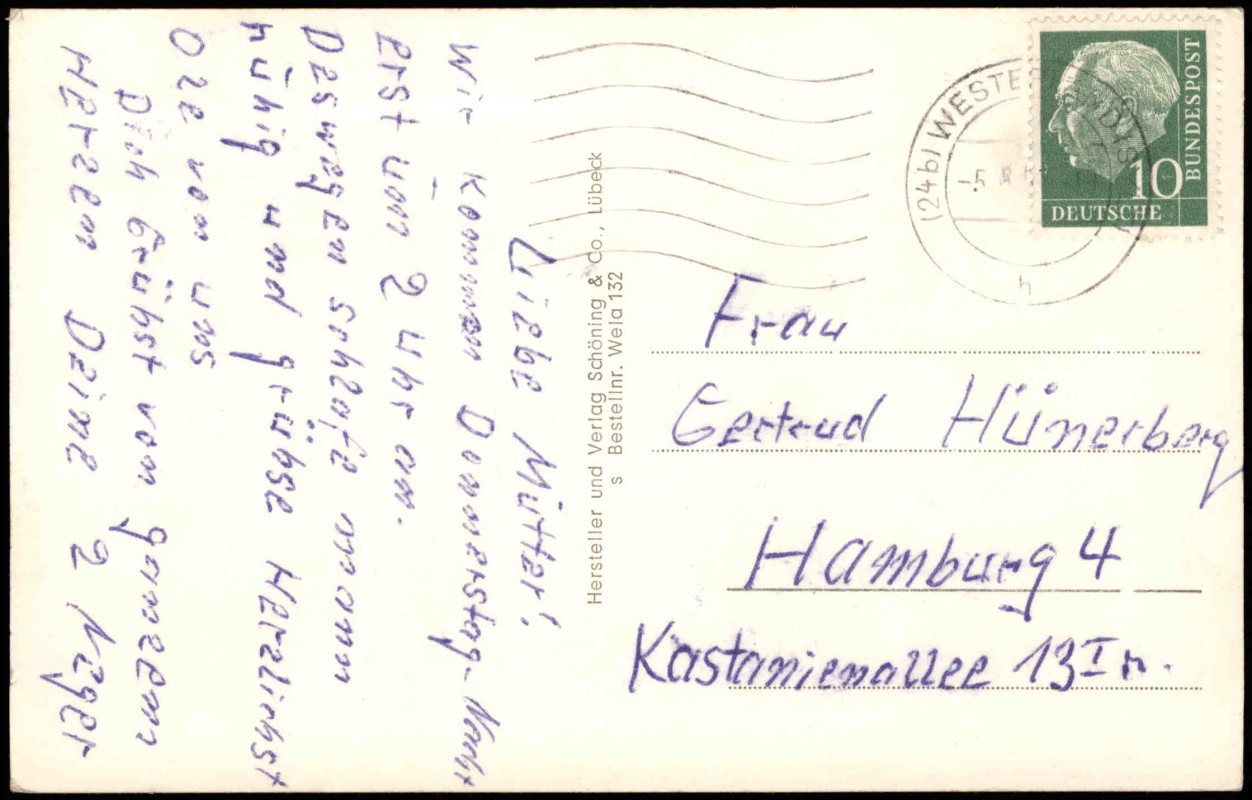 Liebe Mütter!
Wir kommen Donnerstag-Nacht
erst üm 2 Uhr an.
Deswegen schlafe mann
rühig und grühse Herzlichst
Oze von uns
Dich Grühst von ganzem
Herzen Deine 2 Neger
Hersteller und Verlag Schöning & Co., Lübeck
s Bestellnr. Wela 132
(24b) WESTE
-5.
h
BUNDESPOST
10
DEUTSCHE
Frau
Gertrud Hünerberg
Hamburg 4
Kastanienallee 13 I r.